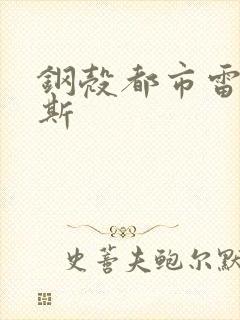 鋼殼都市雷
斯
史蒈夫鲍尔默